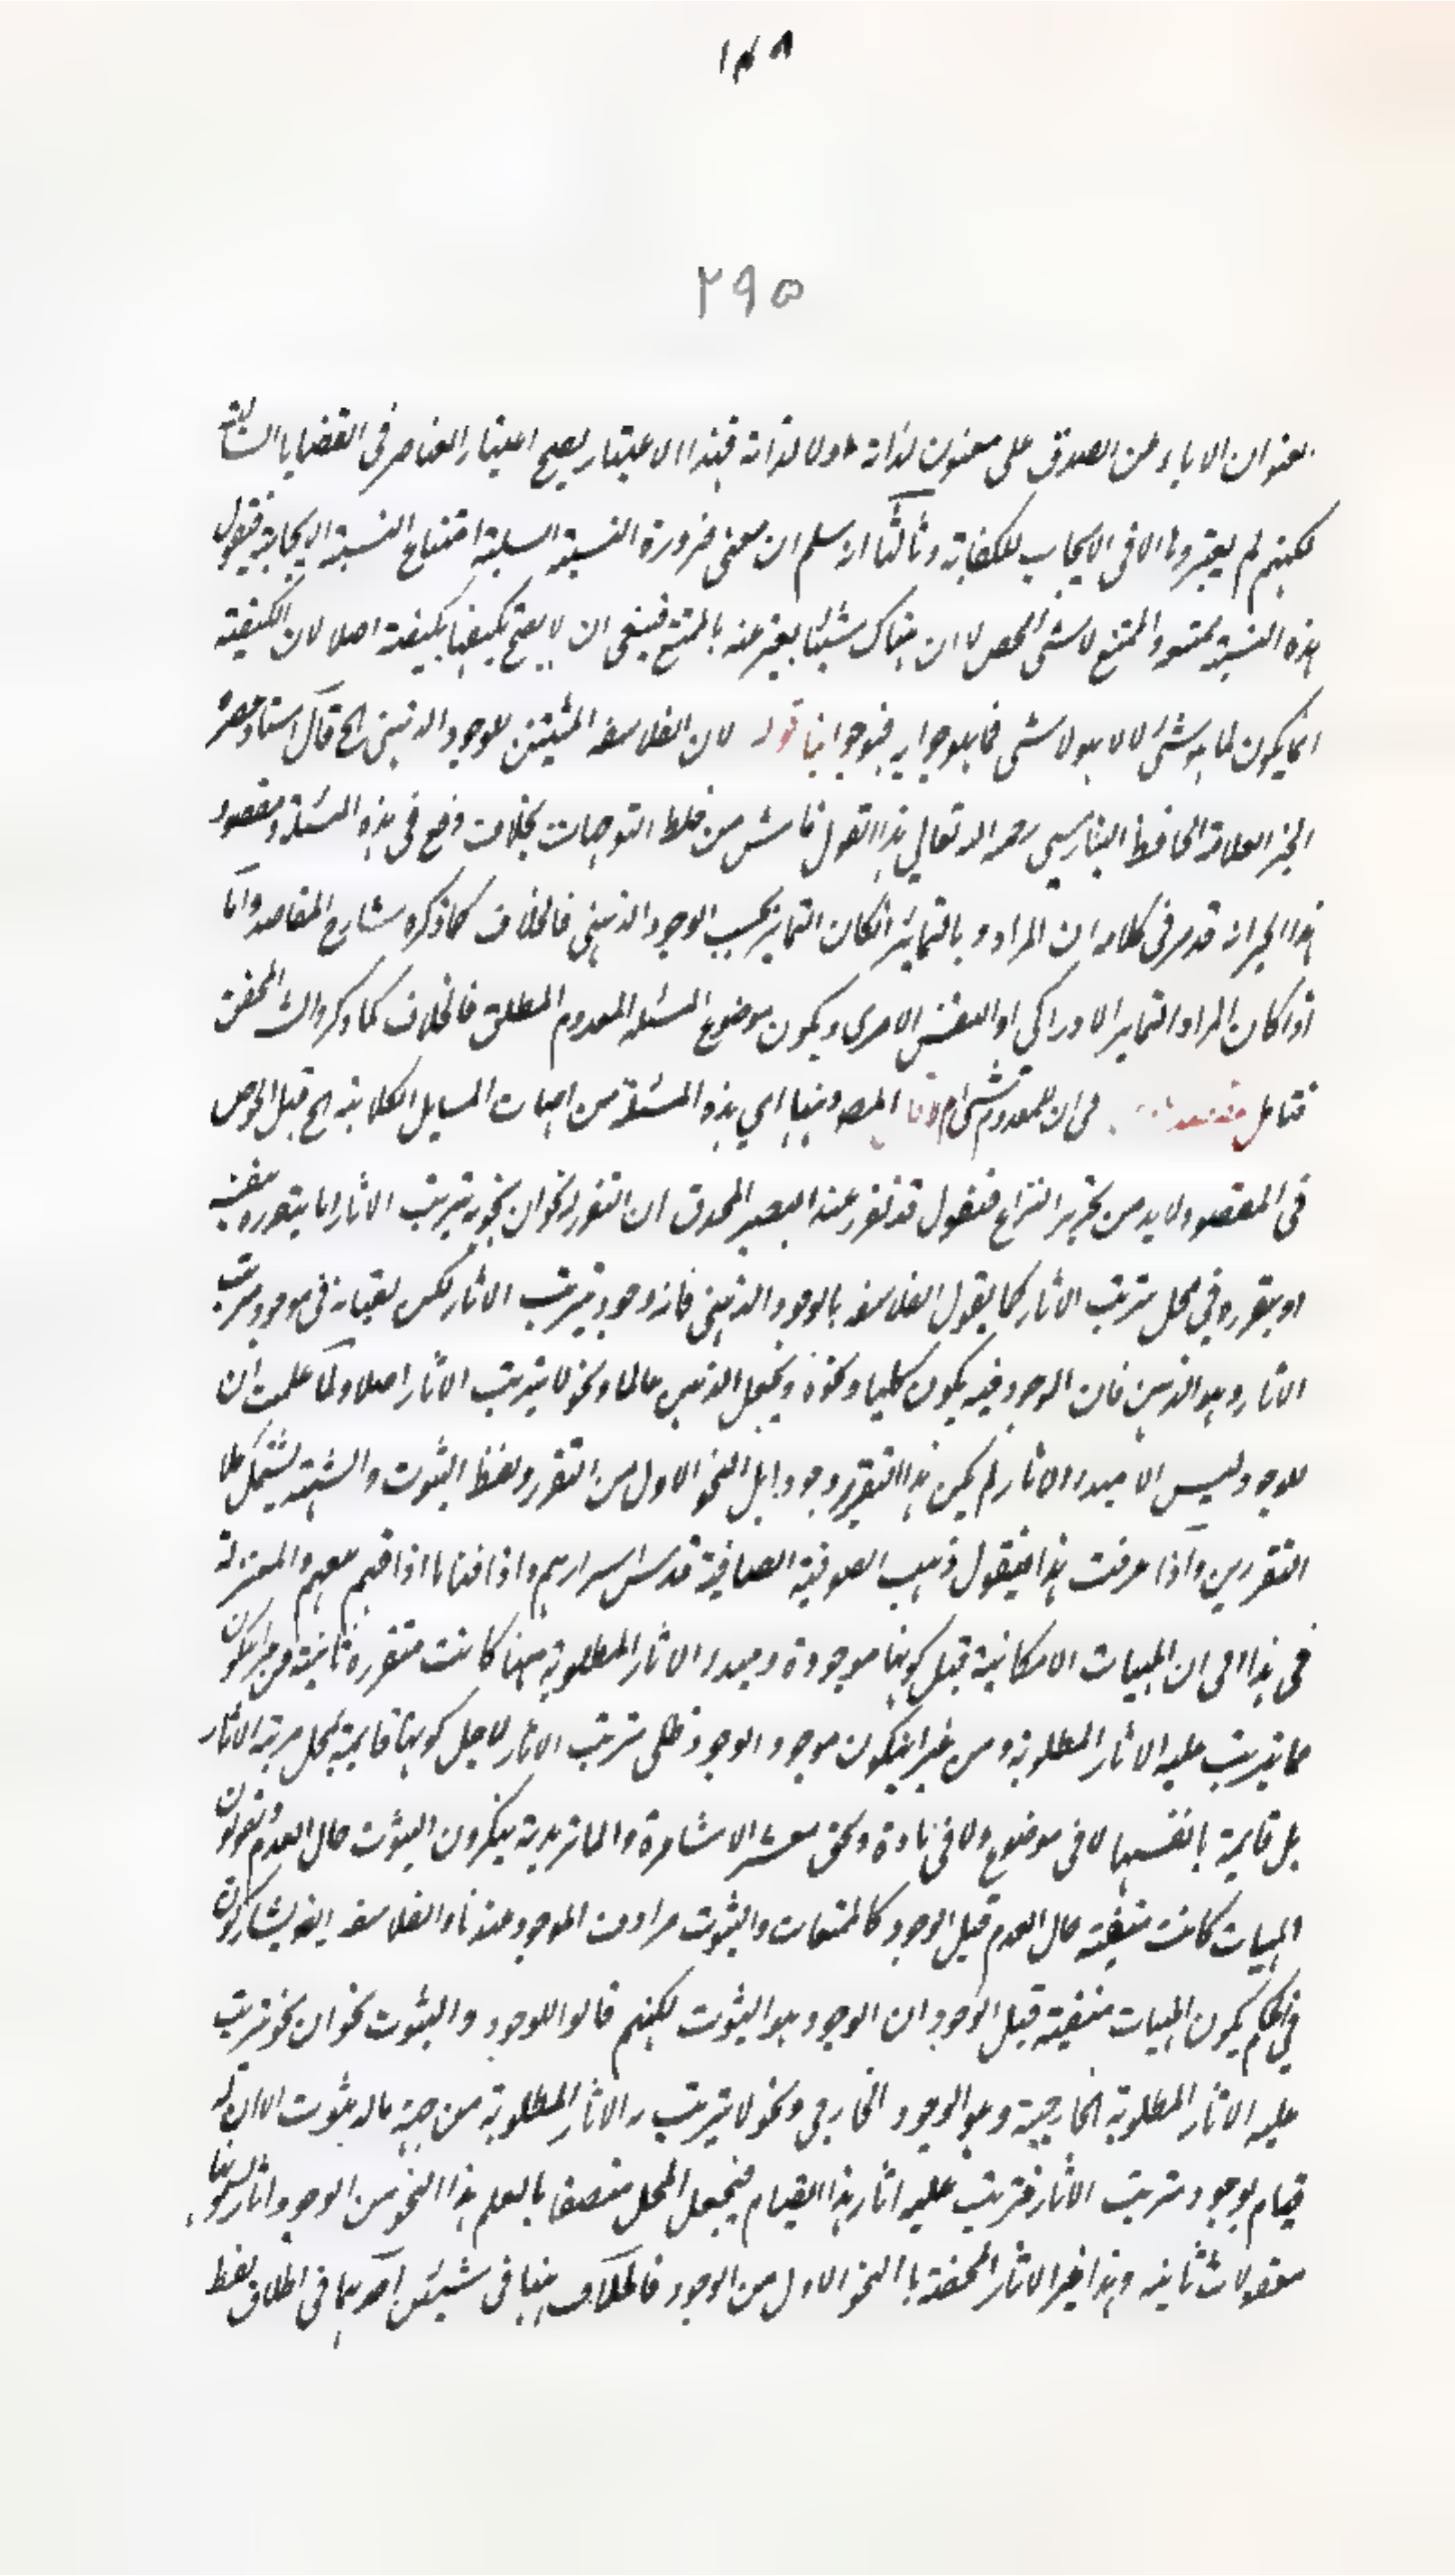 ١٣٨
٢٩٥
بعنوان الاباء عن الصدق على معنون لذاته اولا لذاته فبهذا الاعتبار يصح اعتبار العناصر فى القضايا السالبة
لكنهم لم يعتبروها الا فى الايجاب للكفاية وثالثا انه سلم ان معنى ضرورة النسبة السلبية امتناع النسبة الايجابية فنقول
هذه النسبة ممتنع والممتنع لا شئ محض لا ان هناك شيئا يعبر عنه بالممتنع فينبغى ان لا يصح تكييفها بكيفية اصلا لان الكيفية
انما يكون لما هو شئ لا لا هو لا شئ فما هو جوابه فهو جوابنا قوله لان الفلاسفة المثبتين للوجود الذهنى الخ قال استاد
الحبر العلامة الحافظ البنارسى رحمه الله تعالى هذا القول ناش من خلط التوجيهات بخلاف وقع فى هذه المسئلة ومقصود
هذا الحبر انه قد مر فى كلامه ان المراد بالتمايز ان كان التمايز بحسب الوجود الذهنى فالخلاف كما ذكره شارح المقاصد واما
اذا كان المراد التمايز الادراكى او النفس الامرى ويكون موضوع المسئلة المعدوم المطلق فالخلاف كما ذكر الشـ المحقق
فتامل فى ان المعدوم شئ ام لا قال المصـ وانها اى هذه المسئلة من امهات المسايل الكلامية الخ قبل الخوض
فى المقصود لا بد من تحرير النزاع فنقول قد تقرر عند البصير المحدق ان التقرر نحوان نحو به يترتب الاثار اما يتقرر بنفسه
او يتقرر فى محل مترتب الاثار كما يقول الفلاسفة بالوجود الذهنى فانه وجود يترتب الاثار لكن لقيامه فى موجود مترتب
الاثار وهو الذهن فان الوجود فيه يكون كليا ونحوه ويجعل الذهن عالما ونحو لا يترتب الاثار اصلا ولما علمت ان
للوجود ليس الا مبدا الاثار لم يكن هذا التقرر وجودا بل النحو الاول من التقرر ولفظ الثبوت والشيئية يشتمل كلا
التقررين واذا عرفت هذا فيقول ذهب الصوفية الصافية قدس اسرارهم واذاقنا ما اذاقهم معهم والمعتزلة
فى هذا الى ان المهيات الامكانية قبل كونها موجودة ومبدا الاثار المطلوبة منها كانت متقررة ثابتة من غير ان يكون
مما يترتب عليه الاثار المطلوبة ومن غير ان يكون موجود الوجود ظلى مترتب الاثار لاجل كونها قايمة بمحل مرتبة الاثار
بل قايمة بانفسها لا فى موضوع ولا فى مادة ونحن معشر الاشاعرة والماتريدية ينكرون الثبوت حال العدم ويقولون
المهيات كانت منفية حال العدم قبل الوجود كالممتنعات والثبوت مرادف الموجود عندنا والفلاسفة ايضا يشاركون
فى الحكم بكون المهيات منفية قبل الوجود ان الوجود هو الثبوت لكنهم قالوا للوجود والثبوت نحوان نحو يترتب
عليه الاثار المطلوبة الخارجية وهو الوجود الخارجى ونحو لا يترتب به الاثار المطلوبة من جهة ماله ثبوت الا ان له
قيام بوجود مترتب الاثار فترتب عليه اثار هذا القيام فيجعل المحل متصفا بالعلم هذا النحو من الوجود اثار
معقولات ثانية وهذا غير الاثار المختصة بالنحو الاول من الوجود فالخلاف ههنا فى شيئين احدهما فى اطلاق لفظ